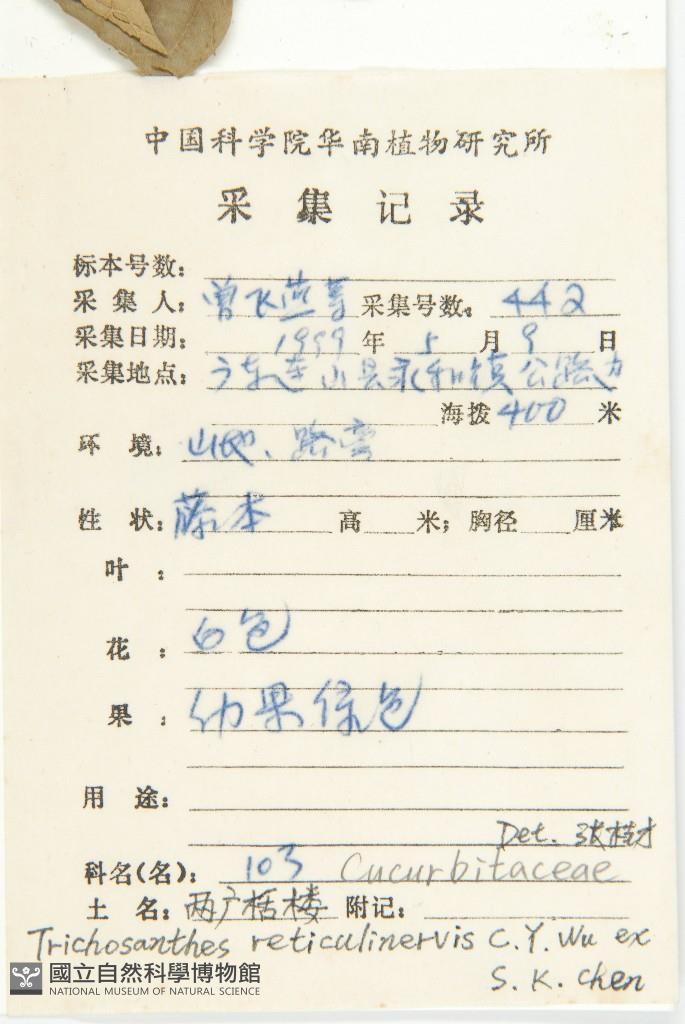 中国科学院华南植物研究所
采集记录
标本号数:
采集人: 曾飞燕等 采集号数: 442
采集日期: 1999 年 5 月 9 日
采集地点: 广东连山县永和镇公路
海拨 400 米
环境: 山地、路旁
性状: 藤本 高 米; 胸径 厘米
叶:
花: 白色
果: 幼果绿色
用途:
Det. 张桂才
科名(名): 103 Cucurbitaceae
土名: 两广栝楼 附记:
Trichosanthes reticulinervis C.Y.Wu ex
S.K.Chen
國立自然科學博物館
NATIONAL MUSEUM OF NATURAL SCIENCE